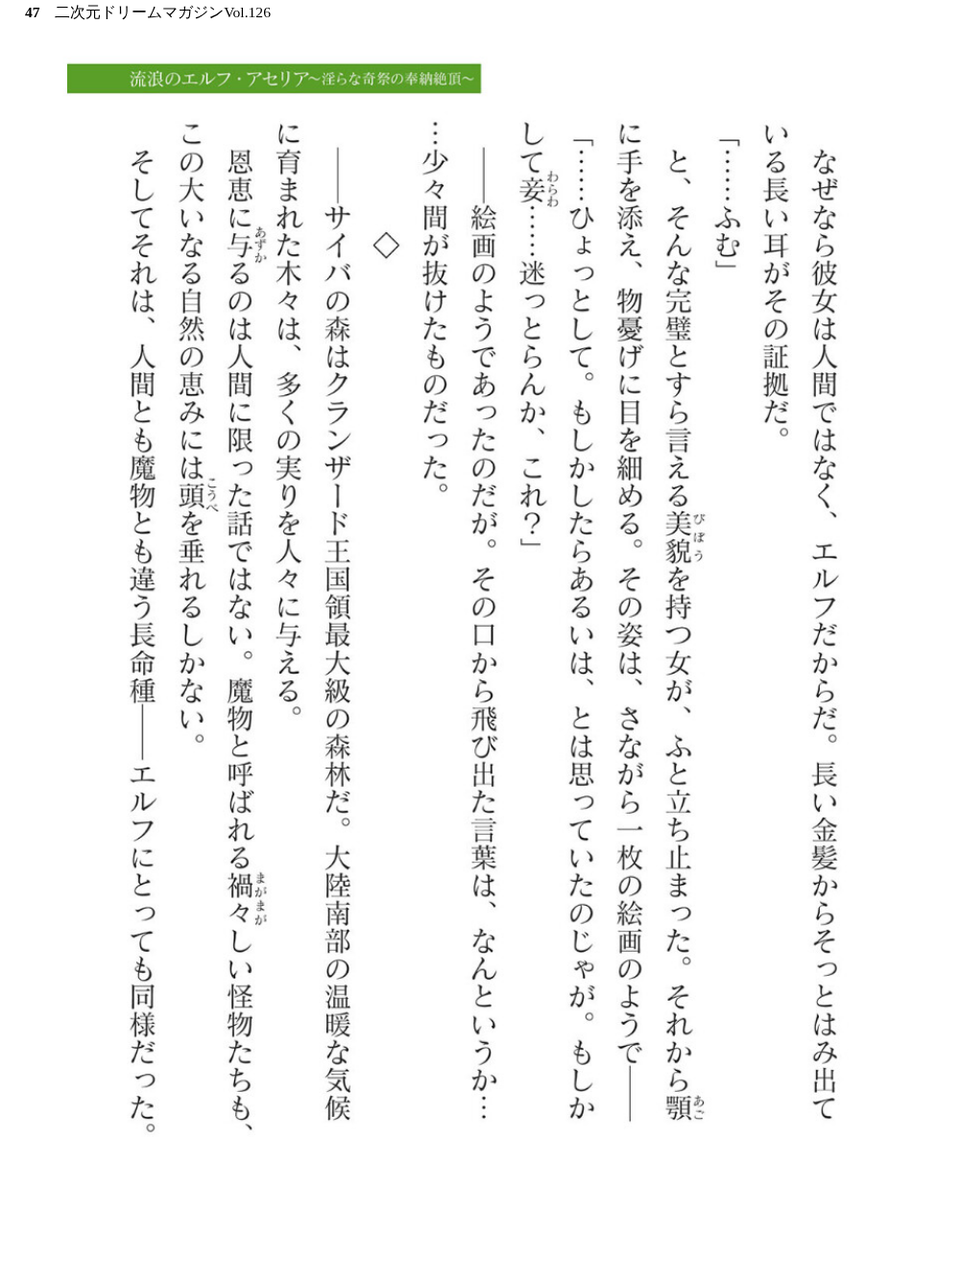 47 二次元ドリームマガジンVol.126
流浪のエルフ・アセリア～淫らな奇祭の奉納絶頂～
なぜなら彼女は人間ではなく、エルフだからだ。長い金髪からそっとはみ出て
いる長い耳がその証拠だ。
「……ふむ」
と、そんな完璧とすら言える美貌を持つ女が、ふと立ち止まった。それから顎
びぼう
あご
に手を添え、物憂げに目を細める。その姿は、さながら一枚の絵画のようで――
「……ひょっとして。もしかしたらあるいは、とは思っていたのじゃが。もしか
して妾……迷っとらんか、これ？」
わらわ
――絵画のようであったのだが。その口から飛び出た言葉は、なんというか…
…少々間が抜けたものだった。
◇
――サイバの森はクランザード王国領最大級の森林だ。大陸南部の温暖な気候
に育まれた木々は、多くの実りを人々に与える。
恩恵に与るのは人間に限った話ではない。魔物と呼ばれる禍々しい怪物たちも、
あずか
まがまが
この大いなる自然の恵みには頭を垂れるしかない。
こうべ
そしてそれは、人間とも魔物とも違う長命種――エルフにとっても同様だった。